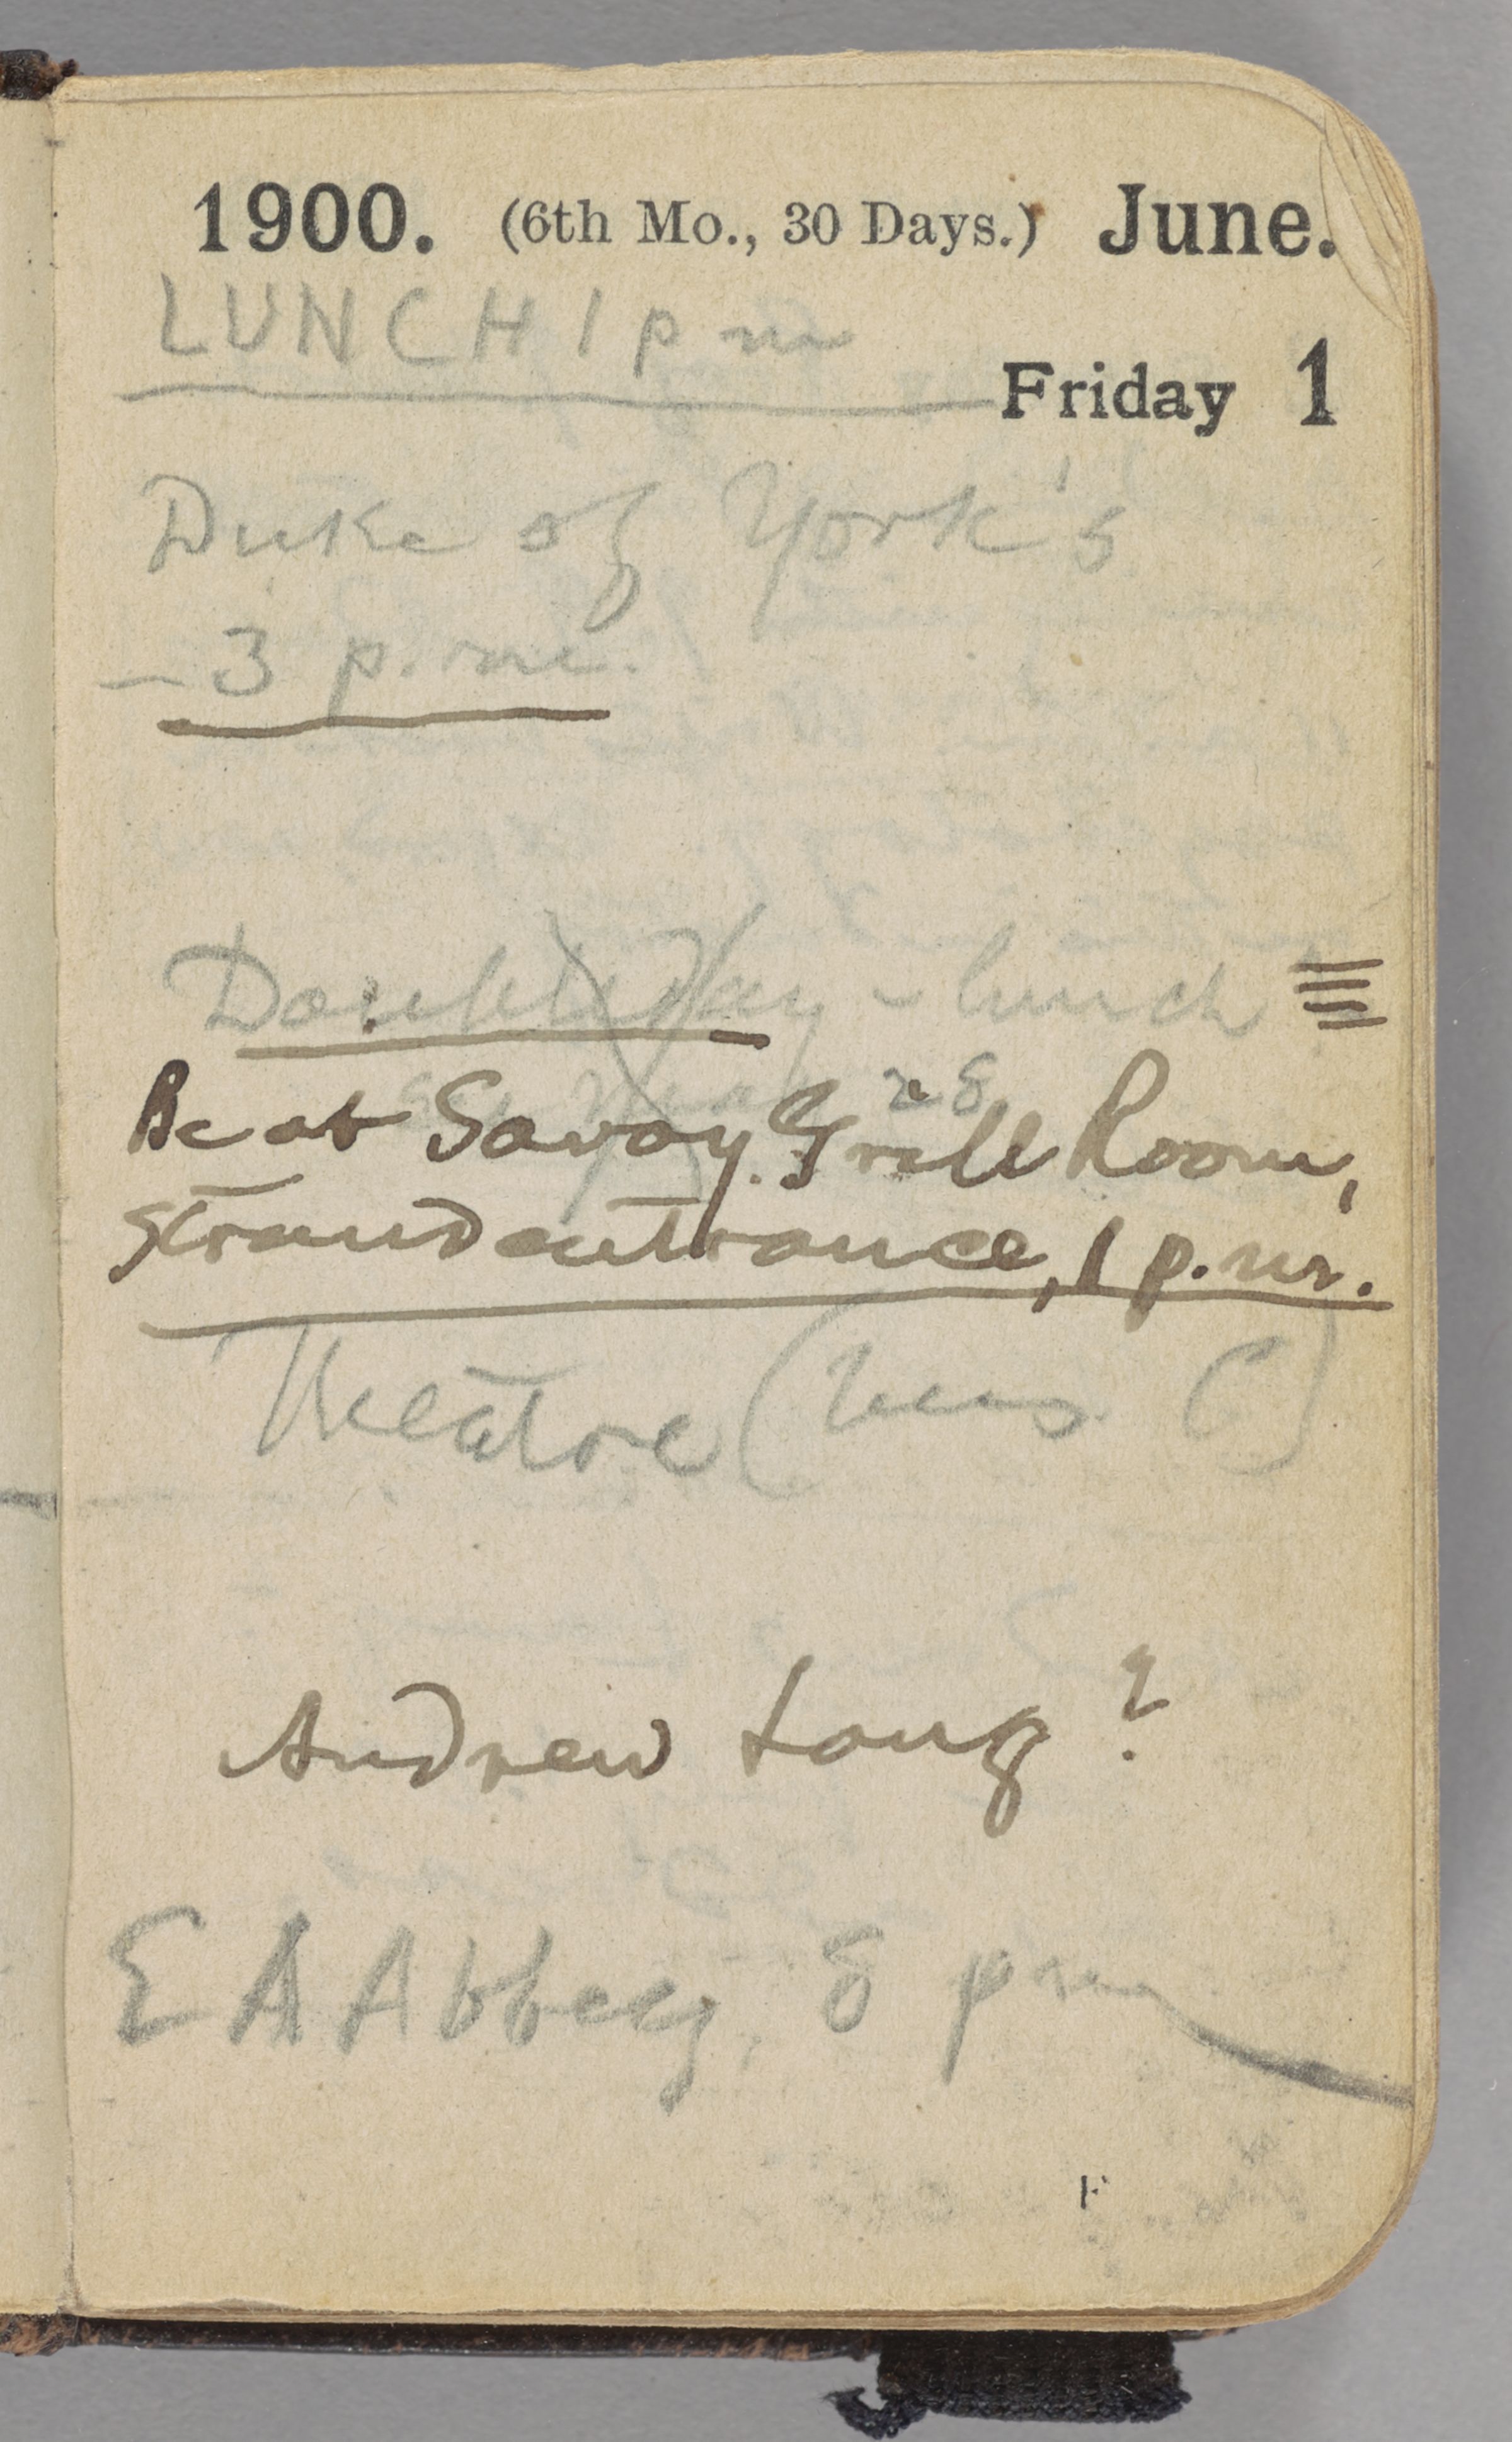 1900. (6th Mo., 30 Days.) June.
LUNCH 1 p m
Friday 1
Duke of York's
— 3 p.m.
Doubleday - lunch
Be at Savoy Grill Room,
Strand entrance, 1 p.m.
Theatre (Mrs. C)
Andrew Lang?
E A Abbey, 8 pm
F